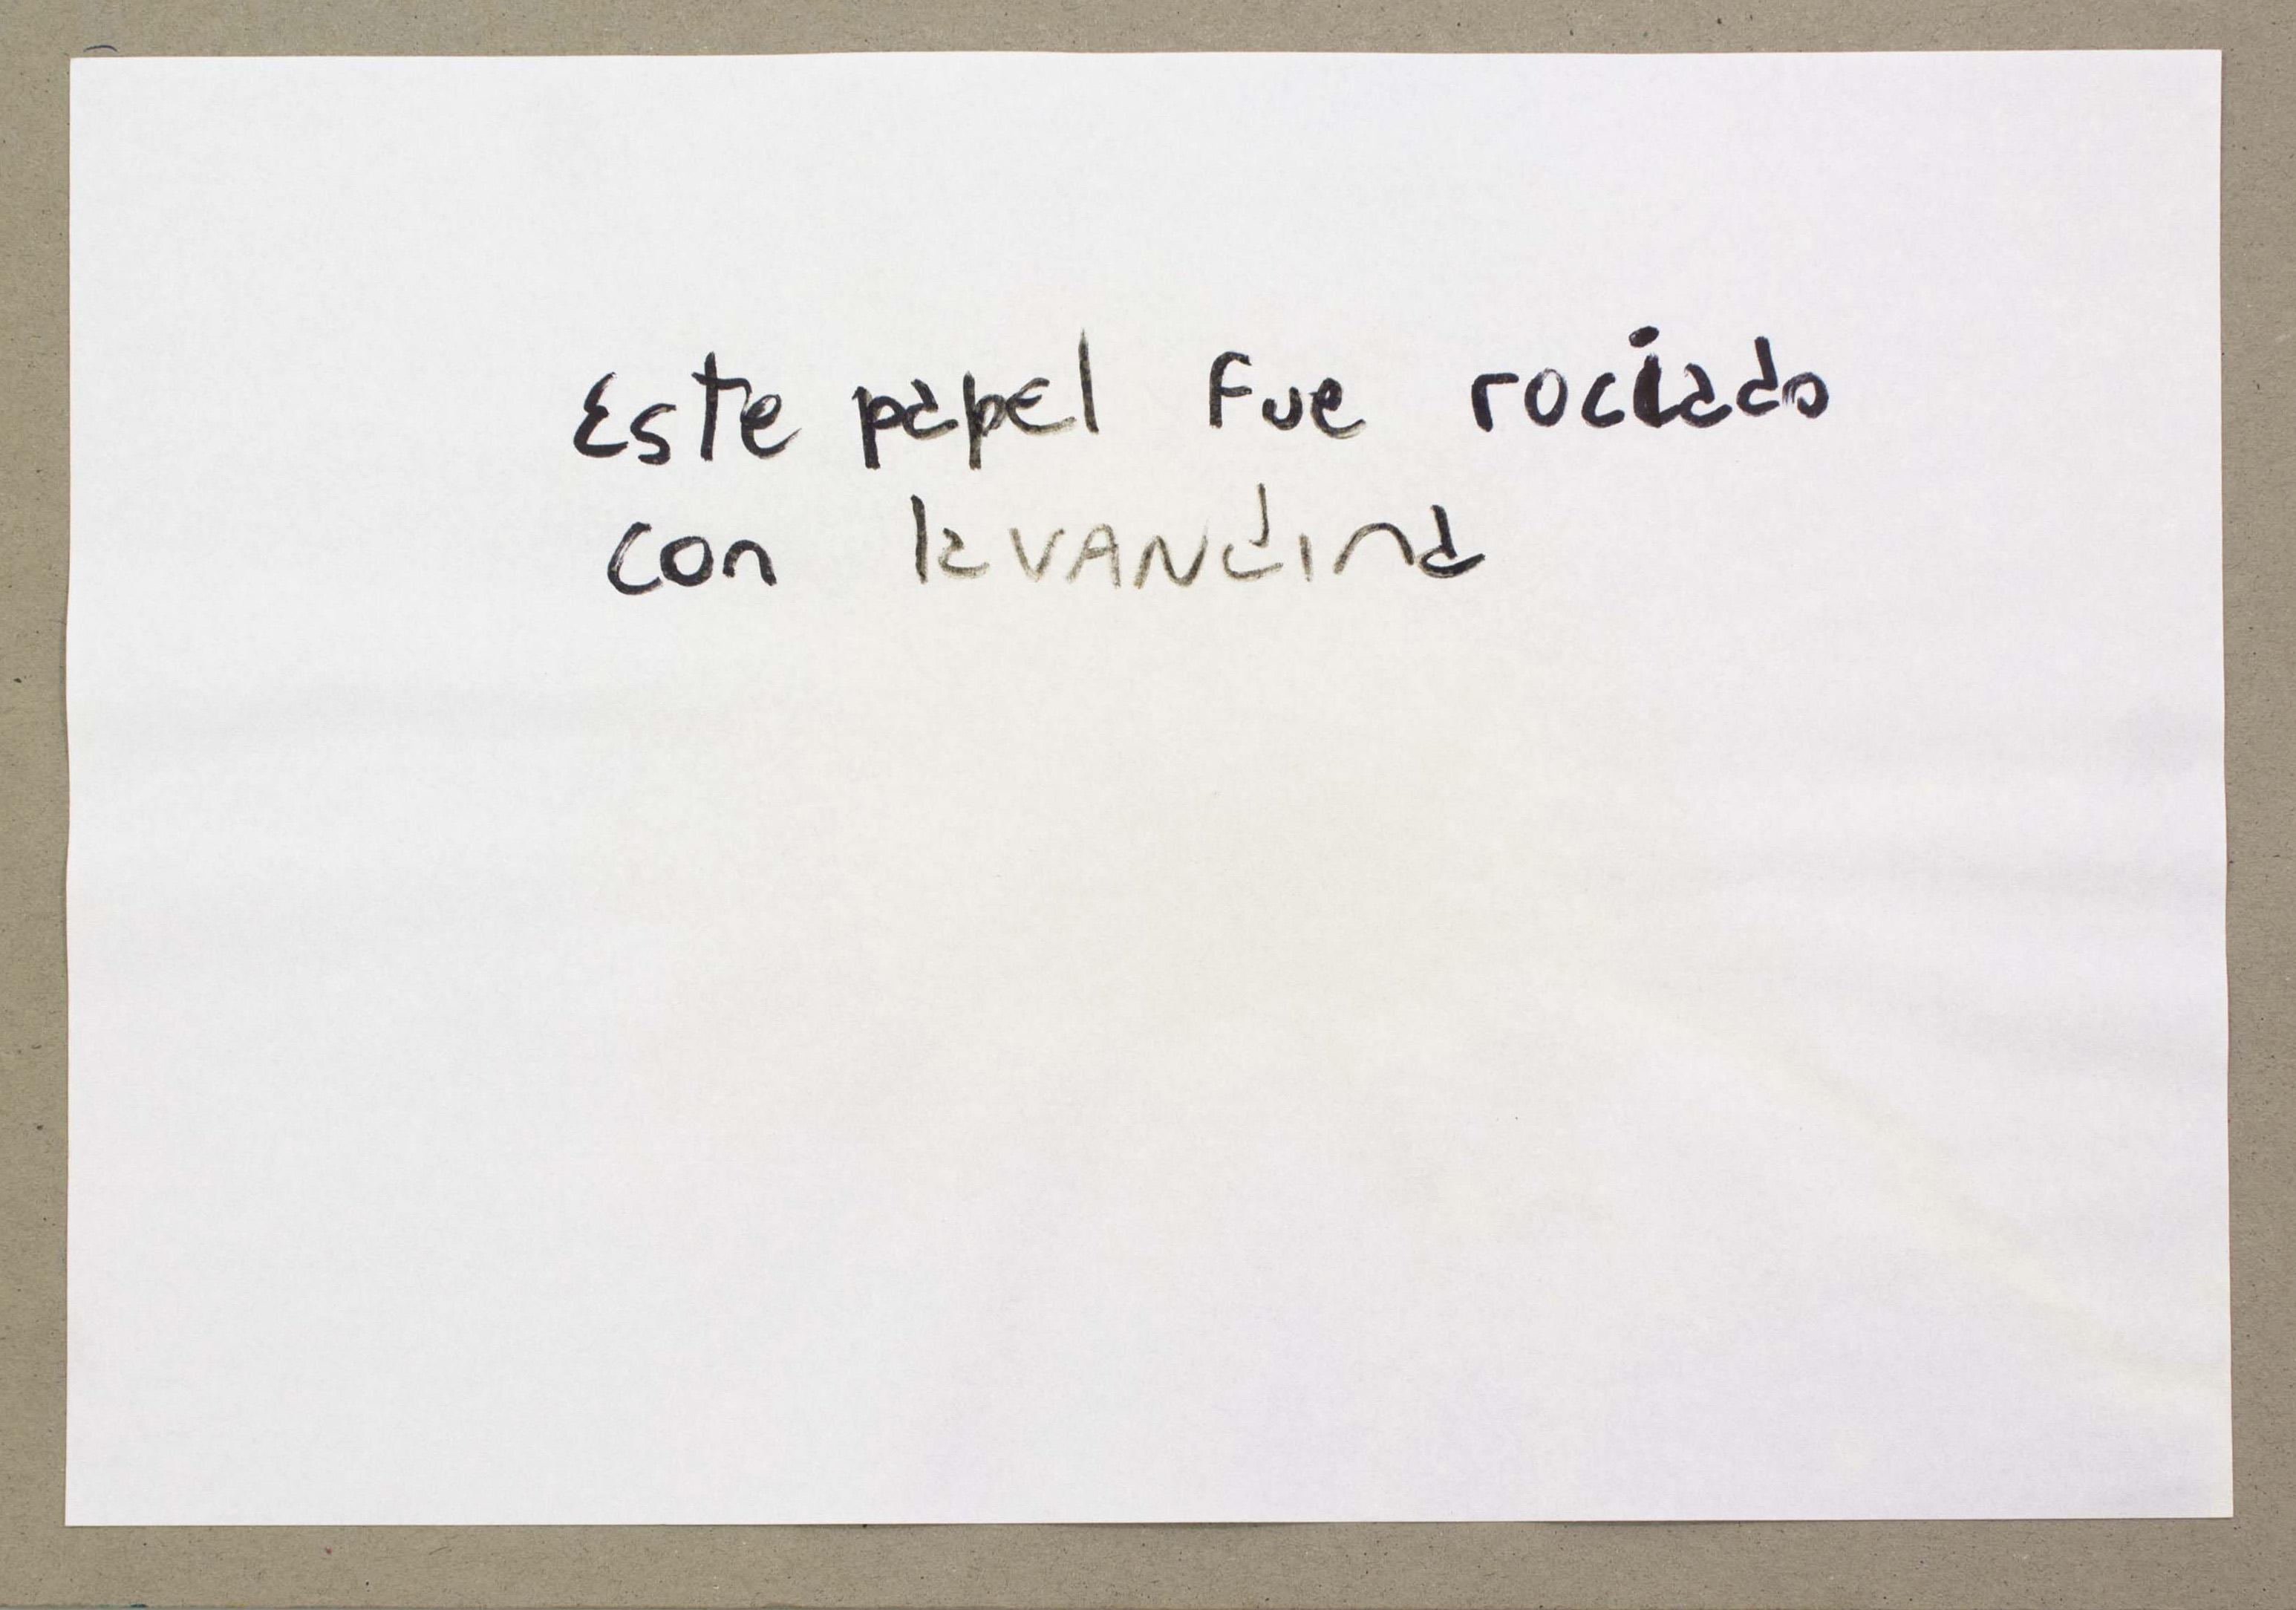 Este papel fue rociado
con lavandina